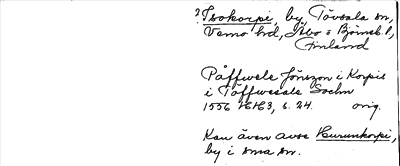 ? Isokorpi, by, Tövsala sn,
Vemo hd, Åbo o Björneb. l,
Finland
Påffwele Jönszon i Korpis
i Töffwesale Sochn
1556 HH3, s. 24. orig.
Kan även avse Hurunkorpi,
by i sma sn.